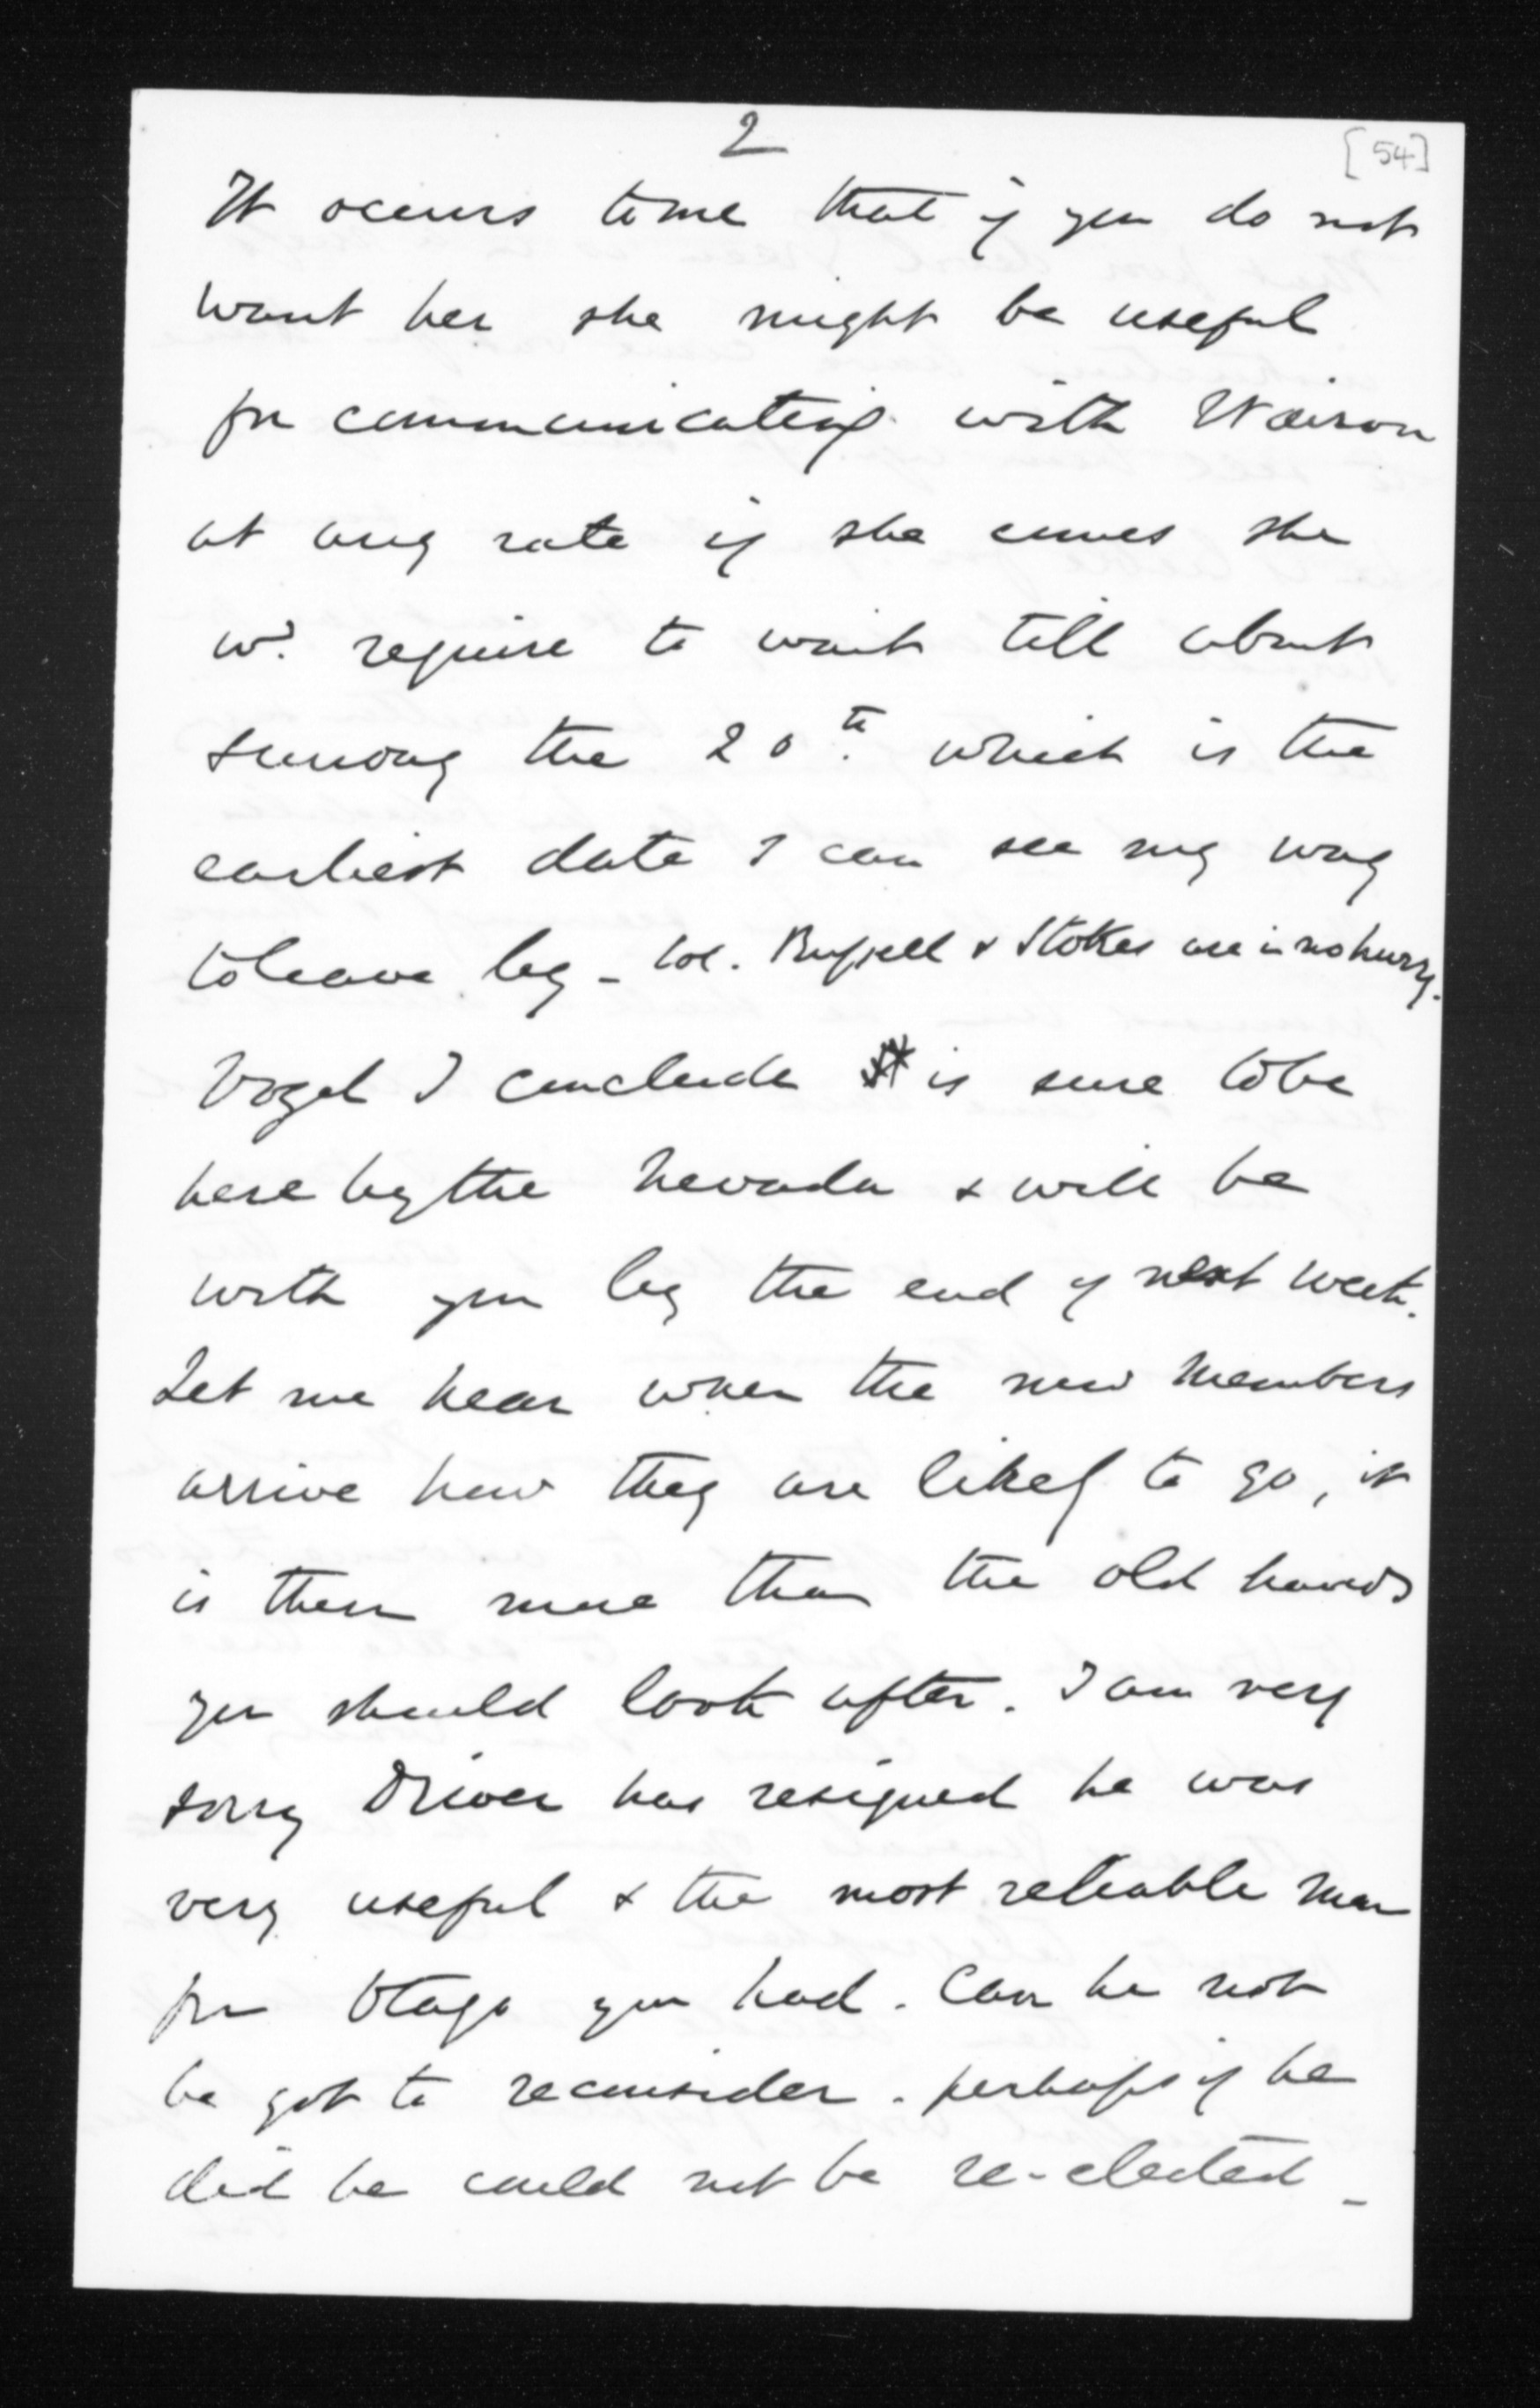 2
[54]
It occurs to me that if you do not
want her she might be useful
for communicating with Wairoa
at any rate if she comes she
wd. require to wait till about
Sunday the 20th. which is the
earliest date I can see my way
to leave by - Col. Russell & Stokes are in no hurry.
Vogel I conclude is sure to be
here by the Nevada & will be
with you by the end of next week.
Let me hear when the new Members
arrive how they are likely to go, it
is them more than the old hands
you should look after. I am very
sorry Driver has resigned he was
very useful & the most reliable man
for Otago you had. Can he not
be got to reconsider. perhaps if he
did he could not be re-elected -